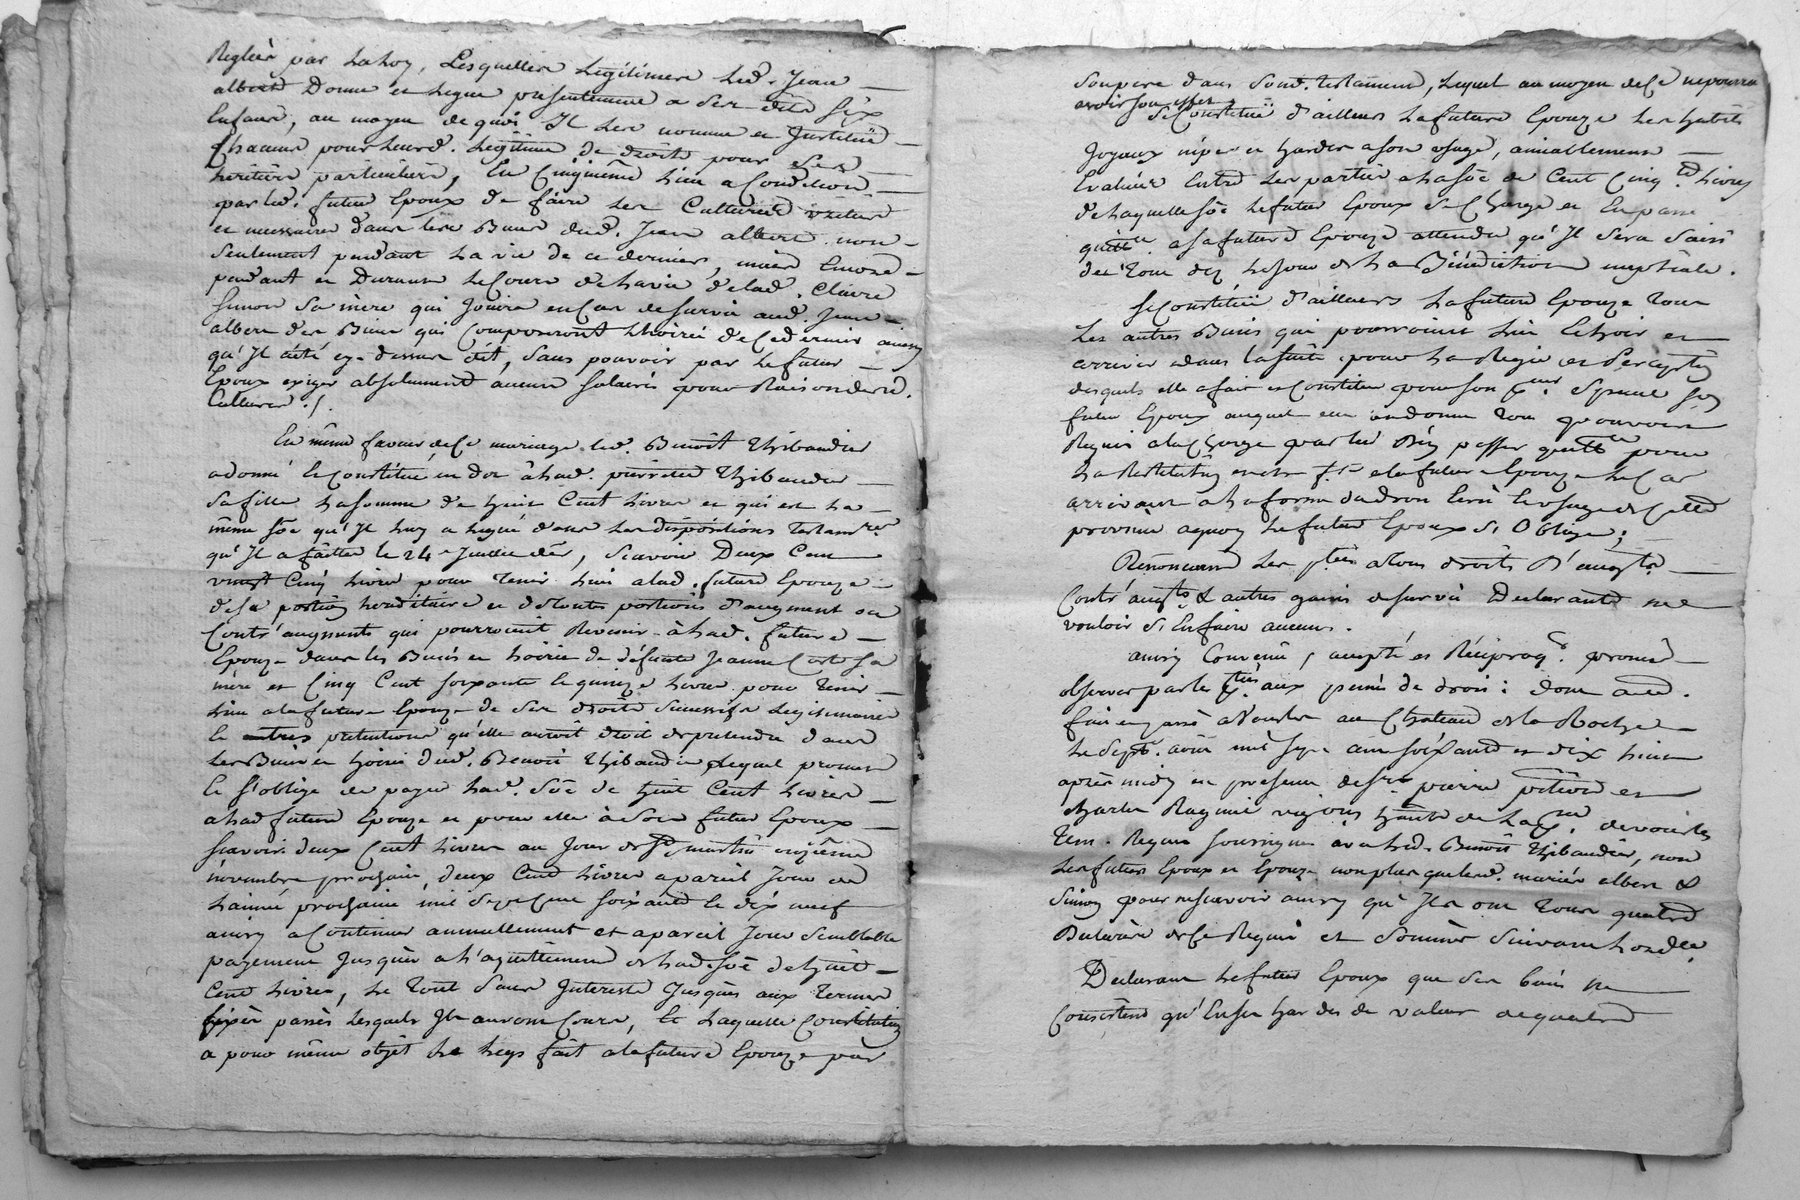 Reglées par la loy, Lesquelles Légitimes led. Jean
albert Donne et legue presentement a ses dits six
Enfans, au moyen de quoi Il les nomme et Institue
Chacun pour leurd. Légitime de droits pour ses
héritiers particuliers, En Cinquième lieu a Condition
par led. futur Epoux de faire les Cultures utiles
et nécessaires dans les Biens dud. Jean albert non
seulement pendant la vie de ce dernier, mais Encore
pendant et Durant le Cours de la vie de lad. Claire
Simon sa mère qui Jouira en Cas de survie aud. Jean
albert des Biens qui Composeront l'hoirie de Ce dernier ainsy
qu'Il a été cy-dessus dit, sans pouvoir par le futur
Epoux exiger absolument aucun salaire pour Raison desd.
Cultures ./.
En même faveur de Ce mariage led. Benoît Thibaudier
a donné et Constitué en dot à lad. pierrette Thibaudier
sa fille la somme de huit Cent livres et qui est la
même sôe qu'Il luy a legué dans les dispositions testam.res
qu'Il a faittes le 24 Juillet der, scavoir Deux Cent
vingt Cinq livres pour tenir lieu a lad. future Epouze
de sa portion héréditaire et de toutes portions d'augment ou
Contr'augment qui pourroient Revenir à lad. future
Epouze dans les Biens et hoirie de défunte Jeanne sa
mère et Cinq Cent soixante et quinze livres pour tenir
lieu a la future Epouze de ses droits successifs Légitimaires
et autres prétentions qu'elle auroit droit de pretendre dans
les Biens et hoirie dud. Benoît Thibaudier Lequel promet
Et s'oblige de payer lad. Sôe de huit Cent livres
a lad future Epouze et pour elle à son futur Epoux
scavoir deux Cent livres au Jour de St martin onzième
novembre prochain, deux Cent livres a pareil Jour de
l'année prochaine mil sept Cent soixante et dix neuf
ainsy a Continuer annuellement et a pareil Jour semblable
payement Jusqu'à l'aquittement de lad. sôe de huit
Cent livres, Le tout sans Interets Jusques aux termes
fixés passés lesquels Ils auront Cours, Et laquelle Constitution
a pour même objet le legs fait a la future Epouze par
son pere dans sond. testament, lequel au moyen de Ce ne pourra
avoir son effet
Se Constitue d'ailleurs la future Epouze les habits
Joyaux nipes et hardes a son usage, amiablement
Evalués Entre les parties a la sôe de Cent Cinq.te livres
de laquelle sôe le futur Epoux se Charge et En passe
quitt.ce a sa future Epouze attendu qu'Il sera saisi
du tout dez le Jour de la Bénédiction nuptiale.
Se Constitue d'ailleurs la future Epouze tous
les autres Biens qui pourroient lui Echoir et
arriver dans la suite pour la Regie et Perception
desquels elle a fait et Constitue pour son Spécial led
futur Epoux auquel elle en donne tout pouvoir
Requis a la Charge par lui d'En passer quitt.ce pour
la Restitution En être a la future Epouze le Cas
arrivant a la forme du droit Ecrit Et usage de Cette
province aquoy le futur Epoux s'Oblige;
Renonceant les pties a tous droits D'augt.
Contr'augt. & autres gains de survie Declarants ne
vouloir s'En faire aucuns.
ainsy Convenu, accepté et Réciproq.t promis
observer par les pties aux peines de droit: dont acte.
fait et passé à au Chateau de la Roche
Le août mil sept cent soixante et dix huit
après midy en presence de sr pierre et
Charles de la
tem. Requis soussignés avec led. Benoît Thibaudier, non
les futurs Epoux et Epouze non plus que lesd. mariés albert &
Simon pour ne scavoir ainsy qu'Ils ont tous quatre
Déclaré de Ce Requis et Sommés suivant l'ord.ce
Declarant le futur Epoux que ses biens ne
Consistent qu'En hardes de valeur de quatre